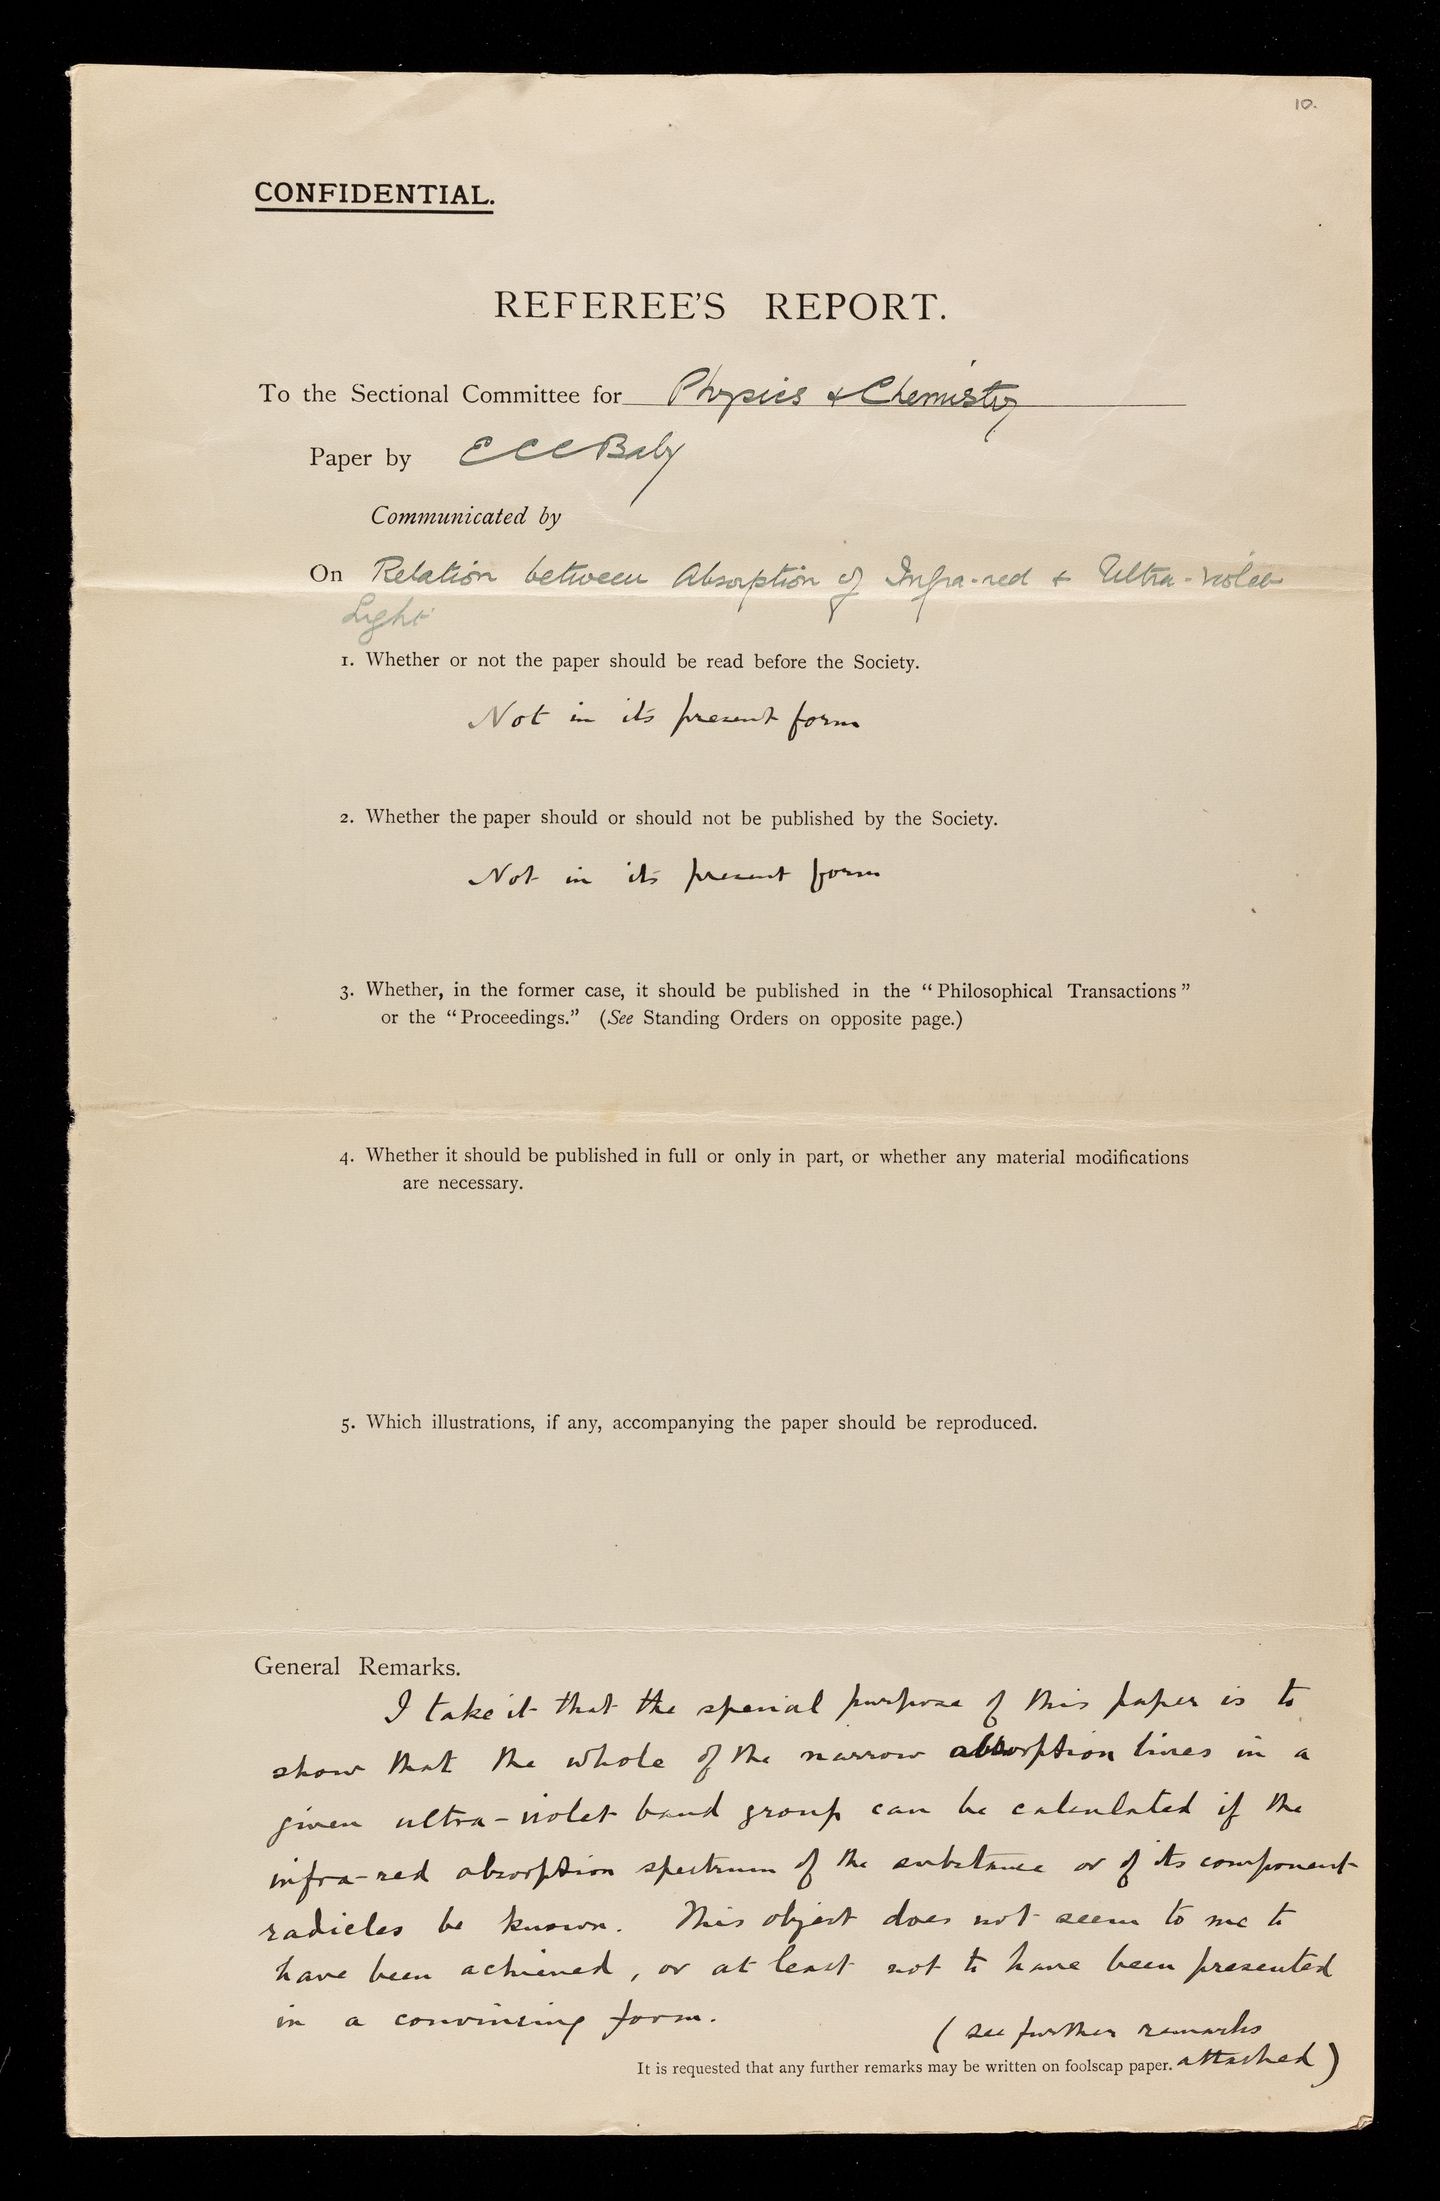 10.
CONFIDENTIAL.
REFEREE'S REPORT.
To the Sectional Committee for Physics & Chemistry
Paper by E C C Baly
Communicated by
On Relation between Absorption of Infra-red & Ultra-violet
Light
1. Whether or not the paper should be read before the Society.
Not in its present form
2. Whether the paper should or should not be published by the Society.
Not in its present form
3. Whether, in the former case, it should be published in the "Philosophical Transactions"
or the "Proceedings." (See Standing Orders on opposite page.)
4. Whether it should be published in full or only in part, or whether any material modifications
are necessary.
5. Which illustrations, if any, accompanying the paper should be reproduced.
General Remarks.
I take it that the special purpose of this paper is to
show that the whole of the narrow absorption lines in a
given ultra-violet band group can be calculated if the
infra-red absorption spectrum of the substance or of its component
radicles be known. This object does not seem to me to
have been achieved, or at least not to have been presented
in a convincing form.
(see further remarks
It is requested that any further remarks may be written on foolscap paper. attached)